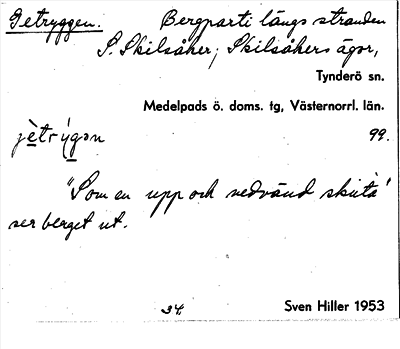 Getryggen. Bergparti längs stranden
S. Skilsåker; Skilsåkers ägor,
Tynderö sn.
Medelpads ö. doms. tg, Västernorrl. län.
jètrýgən 99.
"Som en upp och nedvänd skuta"
ser berget ut.
34. Sven Hiller 1953